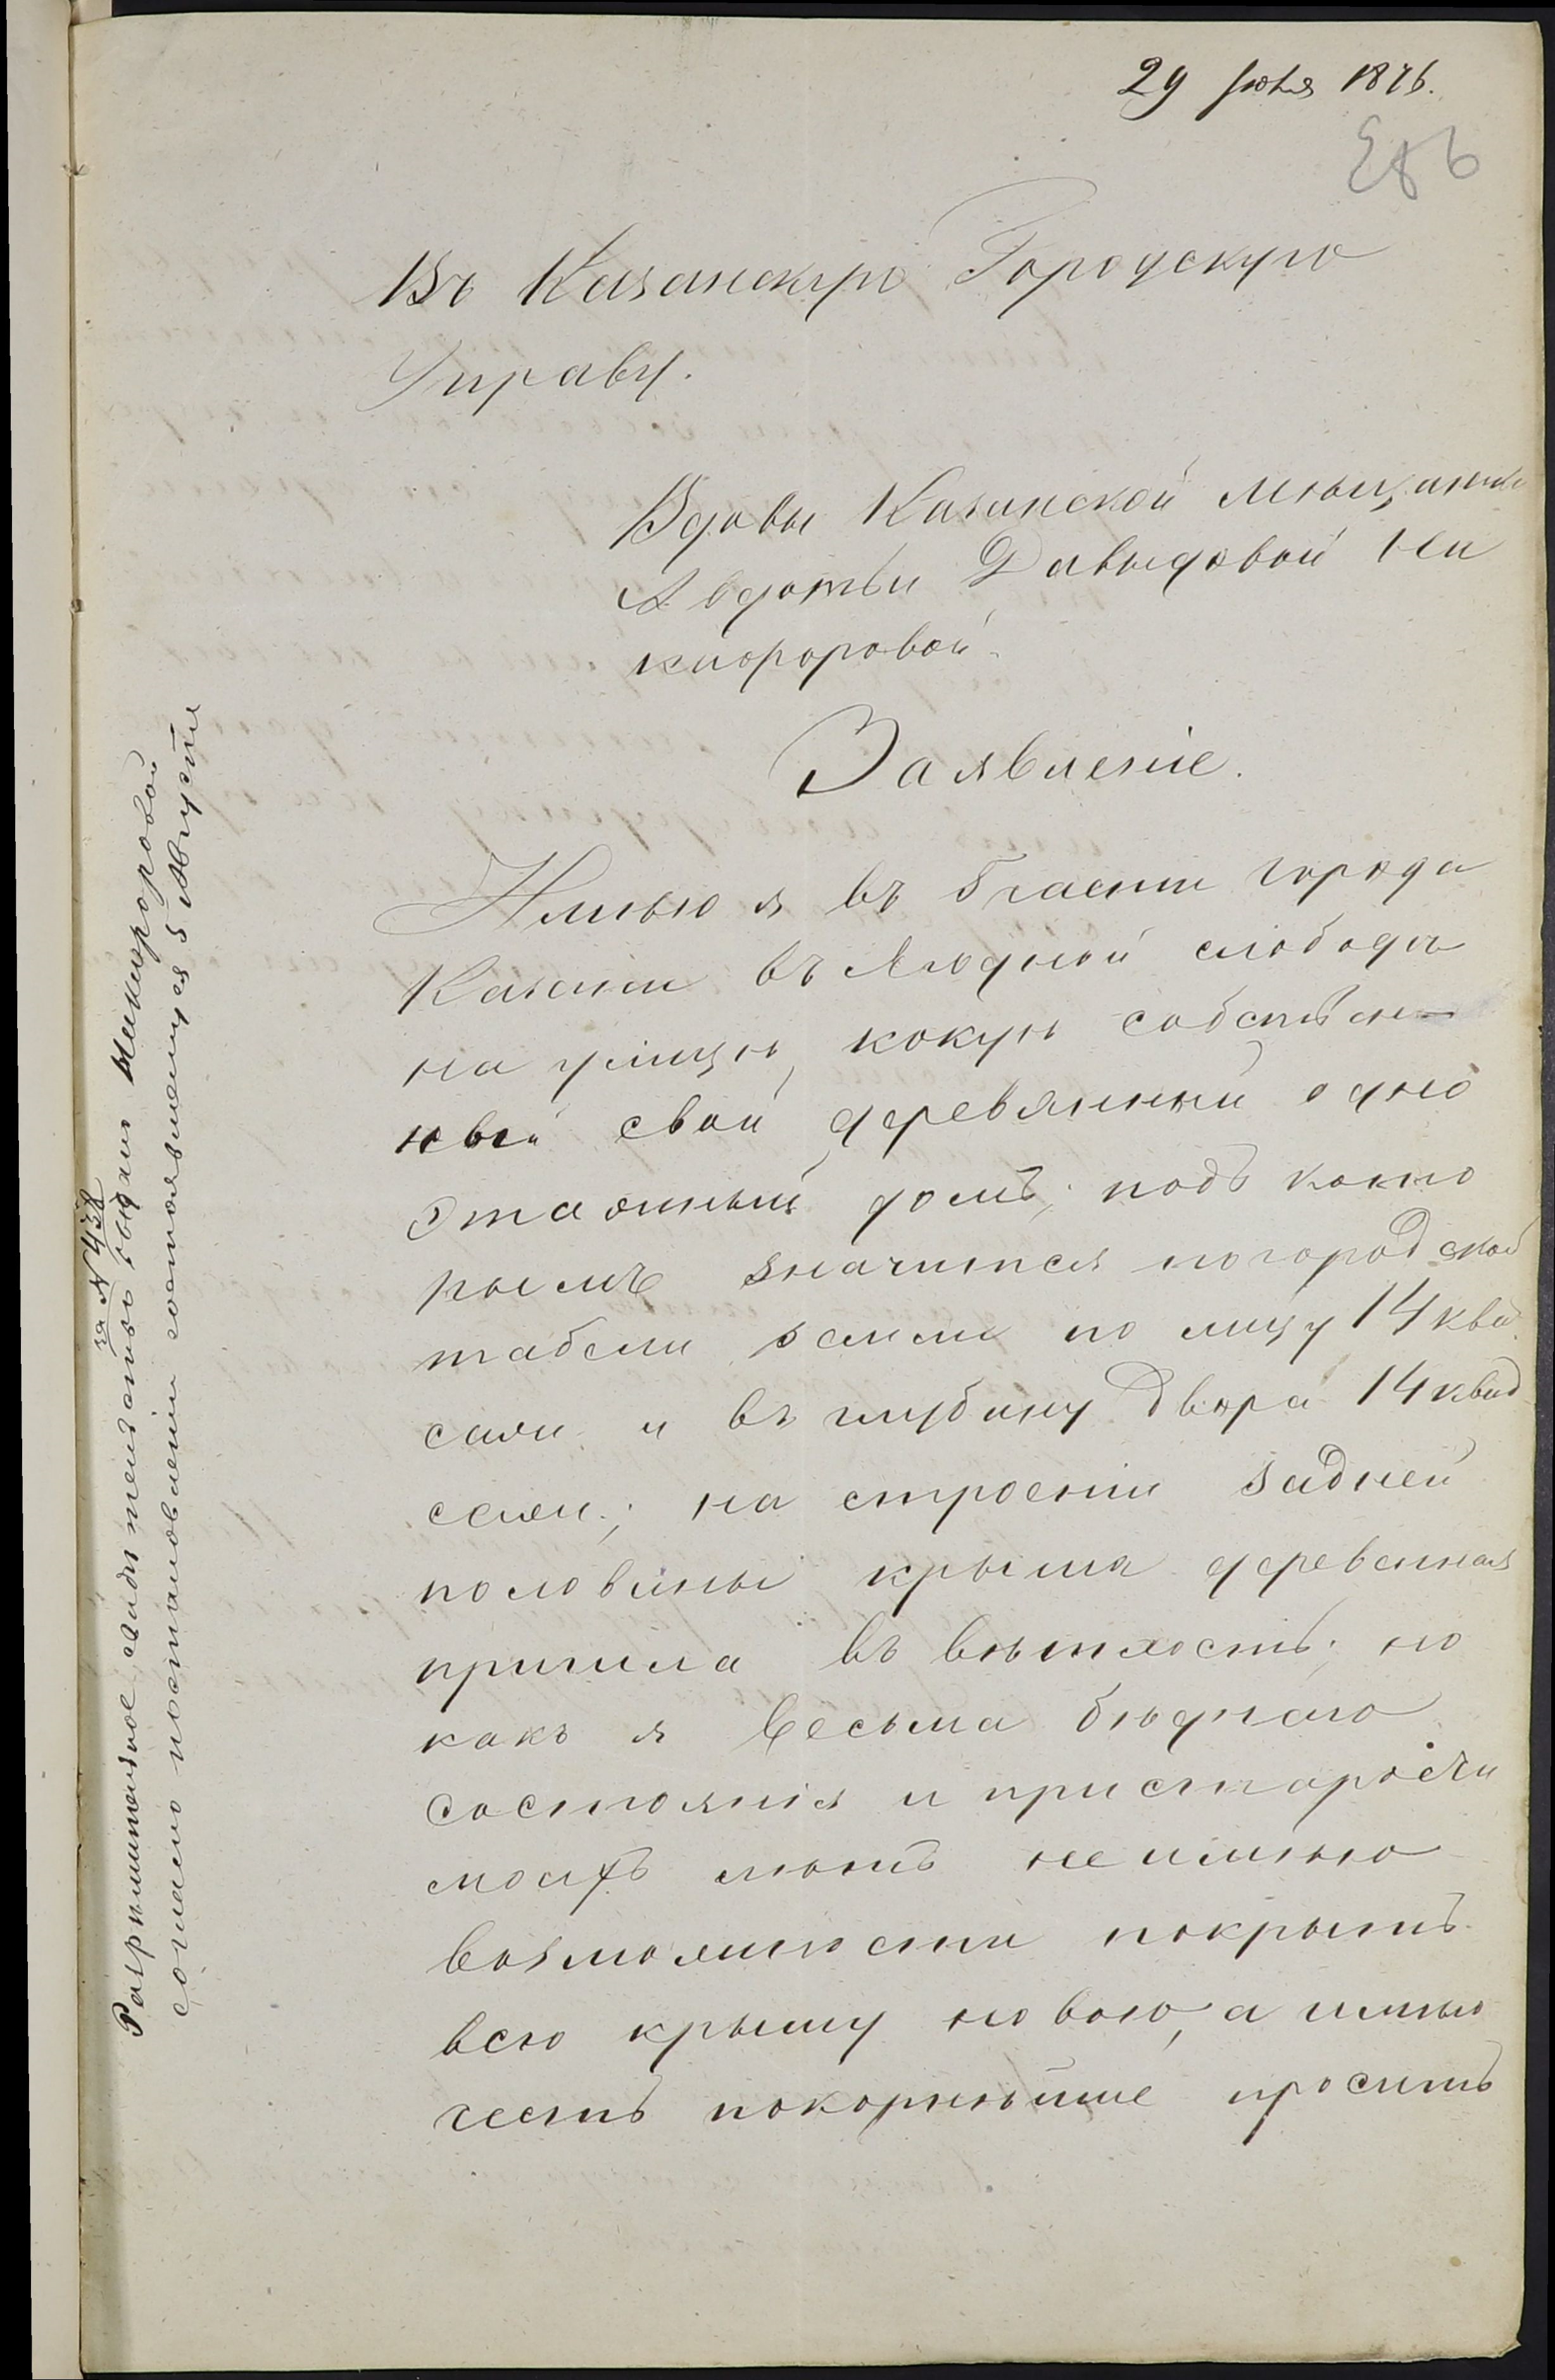 29 Июля 1876.
Въ Казанскую Городскую
Управу.
Вдовы Казанской мѣщанки
Авдотьи Давыдовой Ни
кифоровой.
Заявленіе.
Имѣю я въ 5 части города
Казани въ Ягодной слободѣ
на улицѣ, собствен
ный свой деревянный одно
этажный домъ; подъ кото
рымъ значится по городской
табели земли по лицу 14 квад
саж. и въ глубину двора 14 квад
сажен.; на строеніи задней
половины крыша деревенная
пришла въ вѣтхость; но
какъ я весьма бѣднаго
состоянія и при старости
моихъ лѣтъ не имѣю
возможности покрыть
всю крышу новою, а имѣю
честь покорнѣйше просить
за № 438
Разрѣшительное свидѣтельство выдано Никифоровой
согласно постановленію состоявшемуся 5 Августа